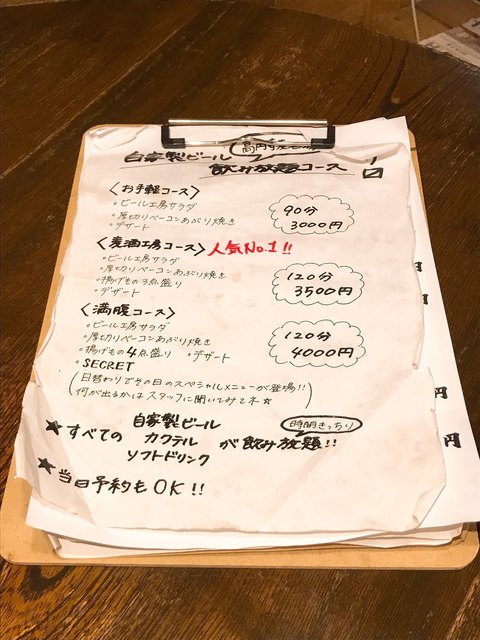 自家製ビール
飲み放題コース
〈お手軽コース〉
・ビール工房サラダ
・厚切りベーコンあぶり焼き
・デザート
90分
3000円
〈麦酒工房コース〉人気No.1!!
・ビール工房サラダ
・厚切りベーコンあぶり焼き
・揚げもの3点盛り
・デザート
120分
3500円
〈満腹コース〉
・ビール工房サラダ
・厚切りベーコンあぶり焼き
・揚げもの4点盛り ・デザート
・SECRET
(日替わりでその日のスペシャルメニューが登場!!
何が出るかはスタッフに聞いてみてネ☆)
120分
4000円
★すべての 自家製ビール
カクテル
ソフトドリンク
が飲み放題!!
時間きっちり
★当日予約もOK!!
円
円
円
円